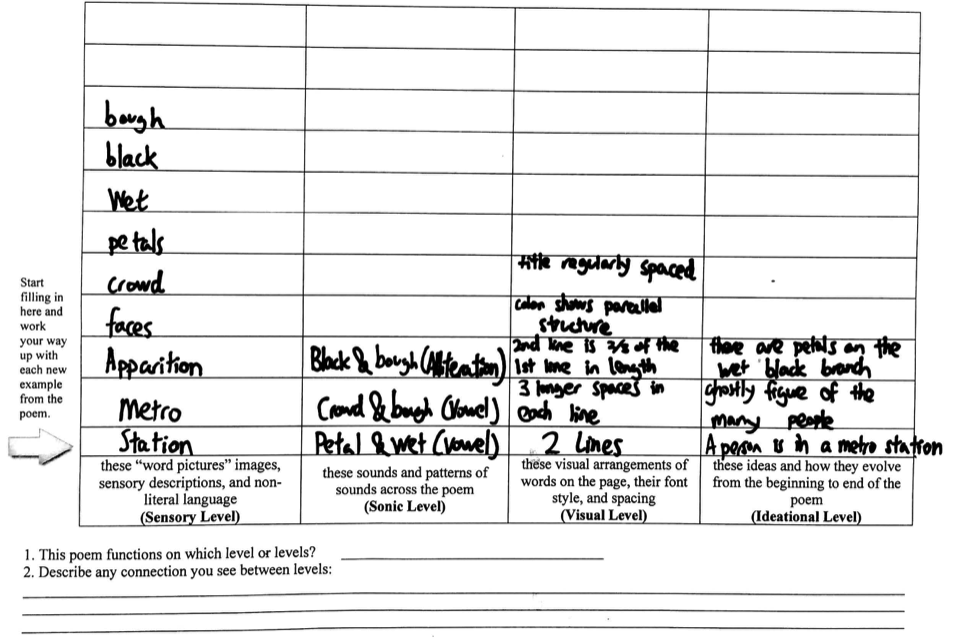 bough
black
Wet
petals
title regularly spaced
crowd
colon shows parallel
structure
faces
2nd line is 2/3 of the
1st line in length
there are petals on the
wet black branch
Apparition
Black & bough (Alliteration)
3 longer spaces in
each line
ghostly figure of the
many people
Metro
Crowd & bough (Vowel)
Station
Petal & Wet (vowel)
2 Lines
A person is in a metro station
Start
filling in
here and
work
your way
up with
each new
example
from the
poem.
these “word pictures” images,
sensory descriptions, and non-
literal language
(Sensory Level)
these sounds and patterns of
sounds across the poem
(Sonic Level)
these visual arrangements of
words on the page, their font
style, and spacing
(Visual Level)
these ideas and how they evolve
from the beginning to end of the
poem
(Ideational Level)
1. This poem functions on which level or levels?
2. Describe any connection you see between levels: